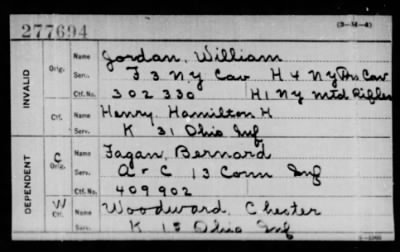 277694 (3-M-4)
INVALID
Orig. Name Jordan, William
Serv. F 3 N.Y Cav H 4 N.Y Pro Cav
Ctf. No. 302330 H1 NY Mtd Rifles
Ctf. Name Henry, Hamilton H
Serv. K 31 Ohio Inf
DEPENDENT
C Orig. Name Fagan, Bernard
Serv. A & C 13 Conn Inf
Ctf. No. 409902
W Ctf. Name Woodward, Chester
Serv. K 15 Ohio Inf